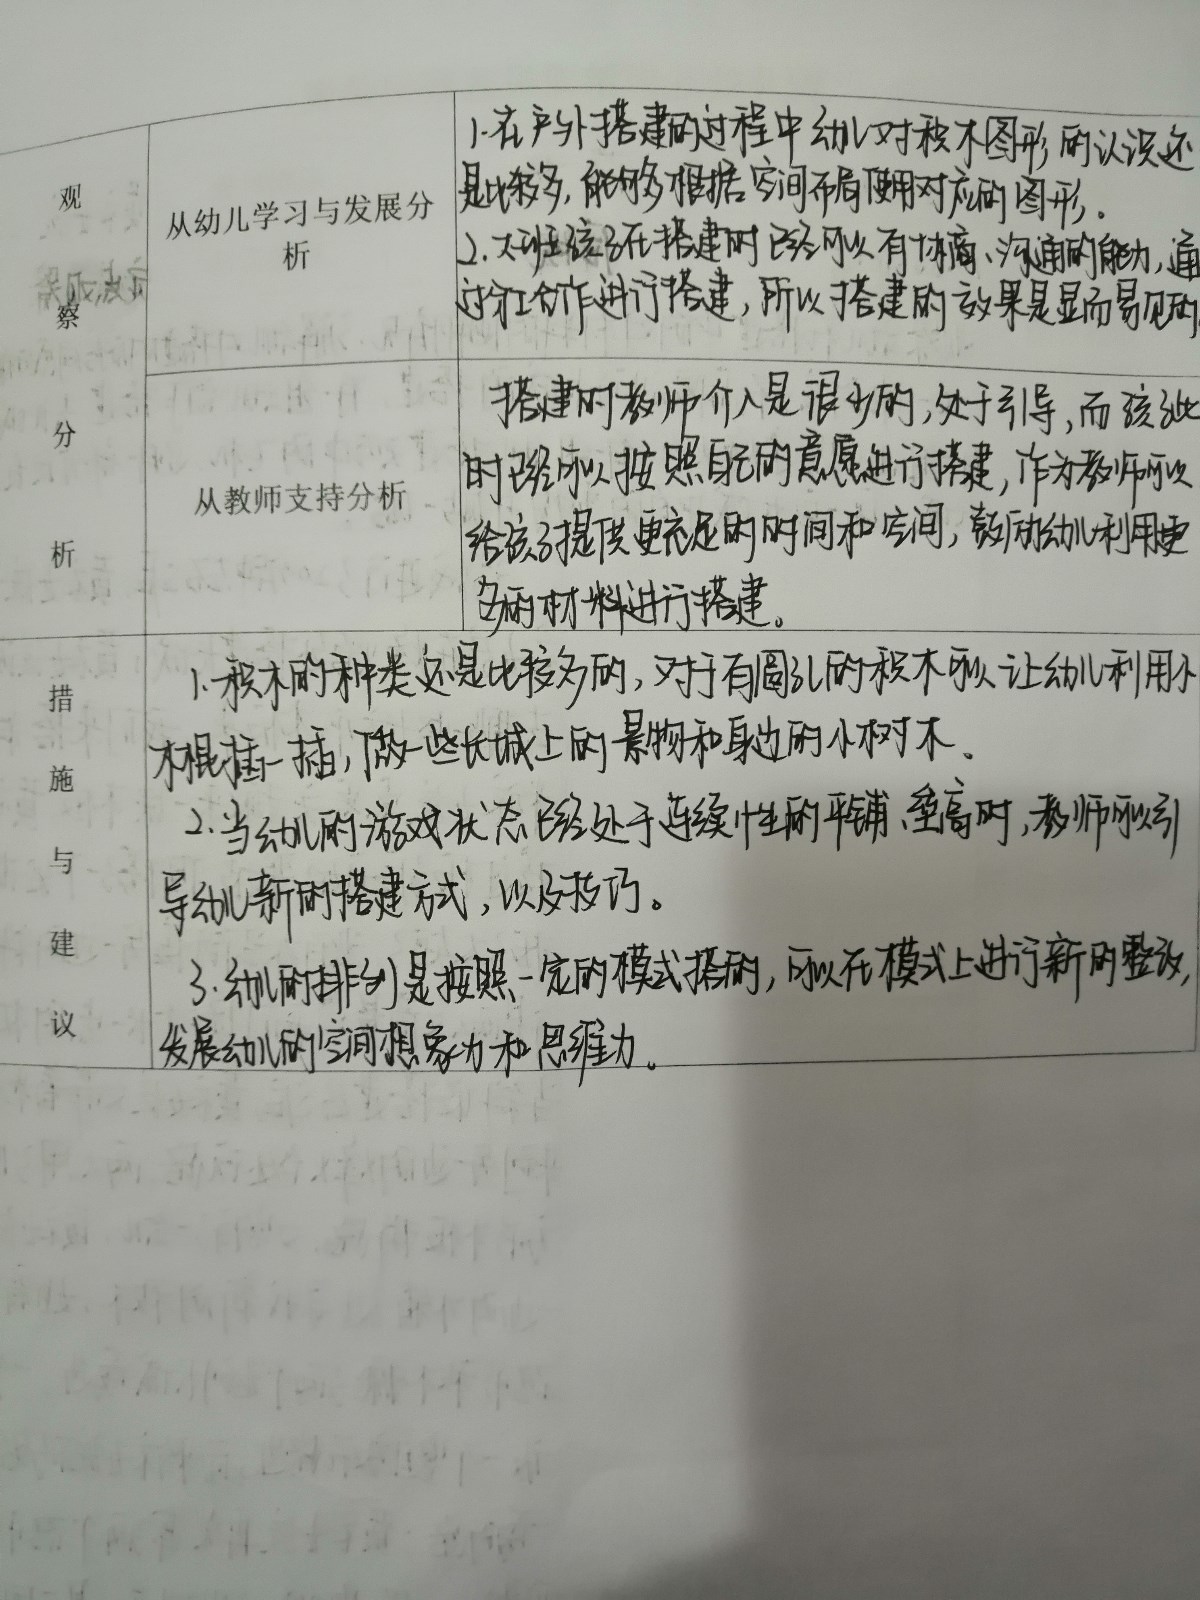 观察分析
从幼儿学习与发展分
析
1.在户外搭建的过程中幼儿对积木图形的认识还
是比较多,能够多根据空间布局使用对应的图形。
2.大班孩子在搭建时已经可以有协商、沟通的能力,通
过分工合作进行搭建,所以搭建的效果是显而易见的,
从教师支持分析
搭建时教师介入是很少的,处于引导,而孩子此
时已经可以按照自己的意愿进行搭建,作为教师可以
给孩子提供更充足的时间和空间,鼓励幼儿利用更
多的材料进行搭建。
措施与建议
1.积木的种类还是比较多的,对于有圆孔的积木可以让幼儿利用小
木棍插一插,做一些长城上的景物和身边的小树木。
2.当幼儿的游戏状态已经处于连续性的平铺、垒高时,教师可以引
导幼儿新的搭建方式,以及技巧。
3.幼儿的排列是按照一定的模式搭的,可以在模式上进行新的整改,
发展幼儿的空间想象力和思维力。